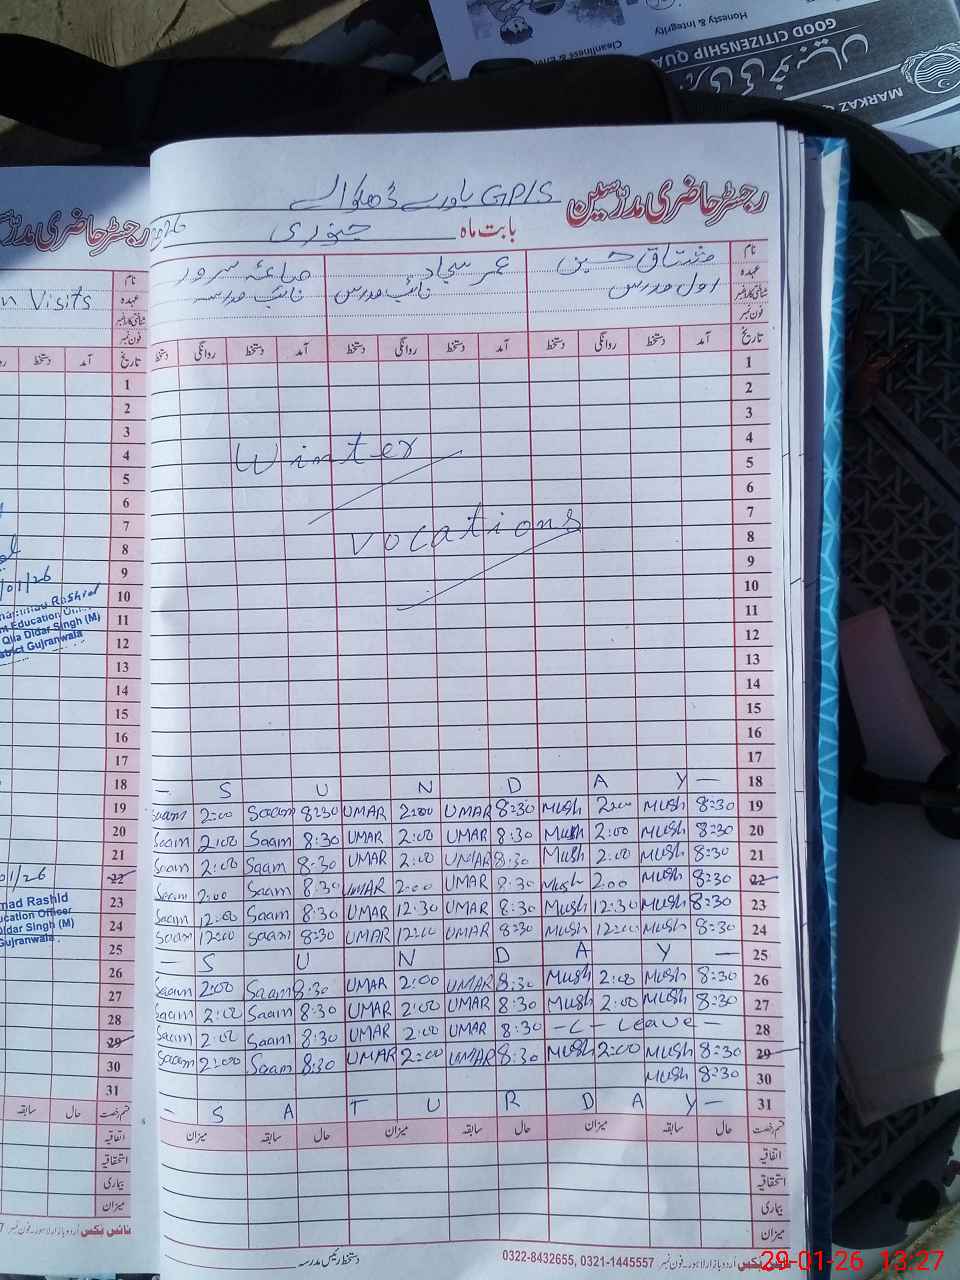 Cleanliness &
Honesty & Integrity
GOOD CITIZENSHIP QUA
MARKAZ
رجسٹر حاضری مدرسین GPIS
بابت ماہ جنوری
2026
نام مشتاق حسین عمر سجاد صاعقہ سرور
عہدہ اول مدرس نائب مدرس نائب مدرسہ
شناختی کارڈ نمبر
فون نمبر
تاریخ آمد دستخط روانگی دستخط آمد دستخط روانگی دستخط آمد دستخط روانگی دستخط
1
2
3
4
Winter
5
6
7
8
vocations
9
10
11
12
13
14
15
16
17
— S U N D A Y — 18
Saam 2:00 Saam 8:30 UMAR 2:00 UMAR 8:30 Mush 2:00 Mush 8:30 19
Saam 2:00 Saam 8:30 UMAR 2:00 UMAR 8:30 Mush 2:00 Mush 8:30 20
Saam 2:00 Saam 8:30 UMAR 2:00 UMAR 8:30 Mush 2:00 Mush 8:30 21
Saam 2:00 Saam 8:30 UMAR 2:00 UMAR 8:30 Mush 2:00 Mush 8:30 22
Saam 12:00 Saam 8:30 UMAR 12:30 UMAR 8:30 Mush 12:30 Mush 8:30 23
Saam 12:00 Saam 8:30 UMAR 12:00 UMAR 8:30 Mush 12:00 Mush 8:30 24
— S U N D A Y — 25
Saam 2:00 Saam 8:30 UMAR 2:00 UMAR 8:30 Mush 2:00 Mush 8:30 26
Saam 2:00 Saam 8:30 UMAR 2:00 UMAR 8:30 Mush 2:00 Mush 8:30 27
Saam 2:00 Saam 8:30 UMAR 2:00 UMAR 8:30 — C — Leave — 28
Saam 2:00 Saam 8:30 UMAR 2:00 UMAR 8:30 Mush 2:00 Mush 8:30 29
Mush 8:30 30
— S A T U R D A Y — 31
قسم رخصت حال سابقہ میزان حال سابقہ میزان حال سابقہ میزان
اتفاقیہ
استحقاقیہ
بیماری
میزان
دستخط رئیس مدرسہ
بکس اردو بازار لاہور۔ فون نمبر 0322-8432655, 0321-1445557
رجسٹر حاضری
نام
عہدہ
n Visits
شناختی کارڈ نمبر
فون نمبر
تاریخ آمد دستخط
1
2
3
4
5
6
7
8
9
/01/26
10
Rashid
11
nt Education
Qila Didar Singh (M)
12
strict Gujranwala
13
14
15
16
17
18
19
20
21
01/26
22
mad Rashid
23
cation Officer
Didar Singh (M)
24
Gujranwala.
25
26
27
28
29
30
31
قسم رخصت حال سابقہ
اتفاقیہ
استحقاقیہ
بیماری
میزان
نفیس بکس اردو بازار لاہور۔ فون نمبر
29-01-26 13:27